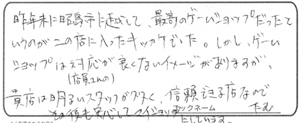 昨年末に昭島市に越して、最寄のゲームショップだったと
いうのがこの店に入ったキッカケでした。しかし、ゲーム
ショップは対応が良くないイメージがありますが、
(店員さんの)
貴店は明るいスタッフが多く、信頼できる店なので
その後も安心して
ックネーム たむ
としています。